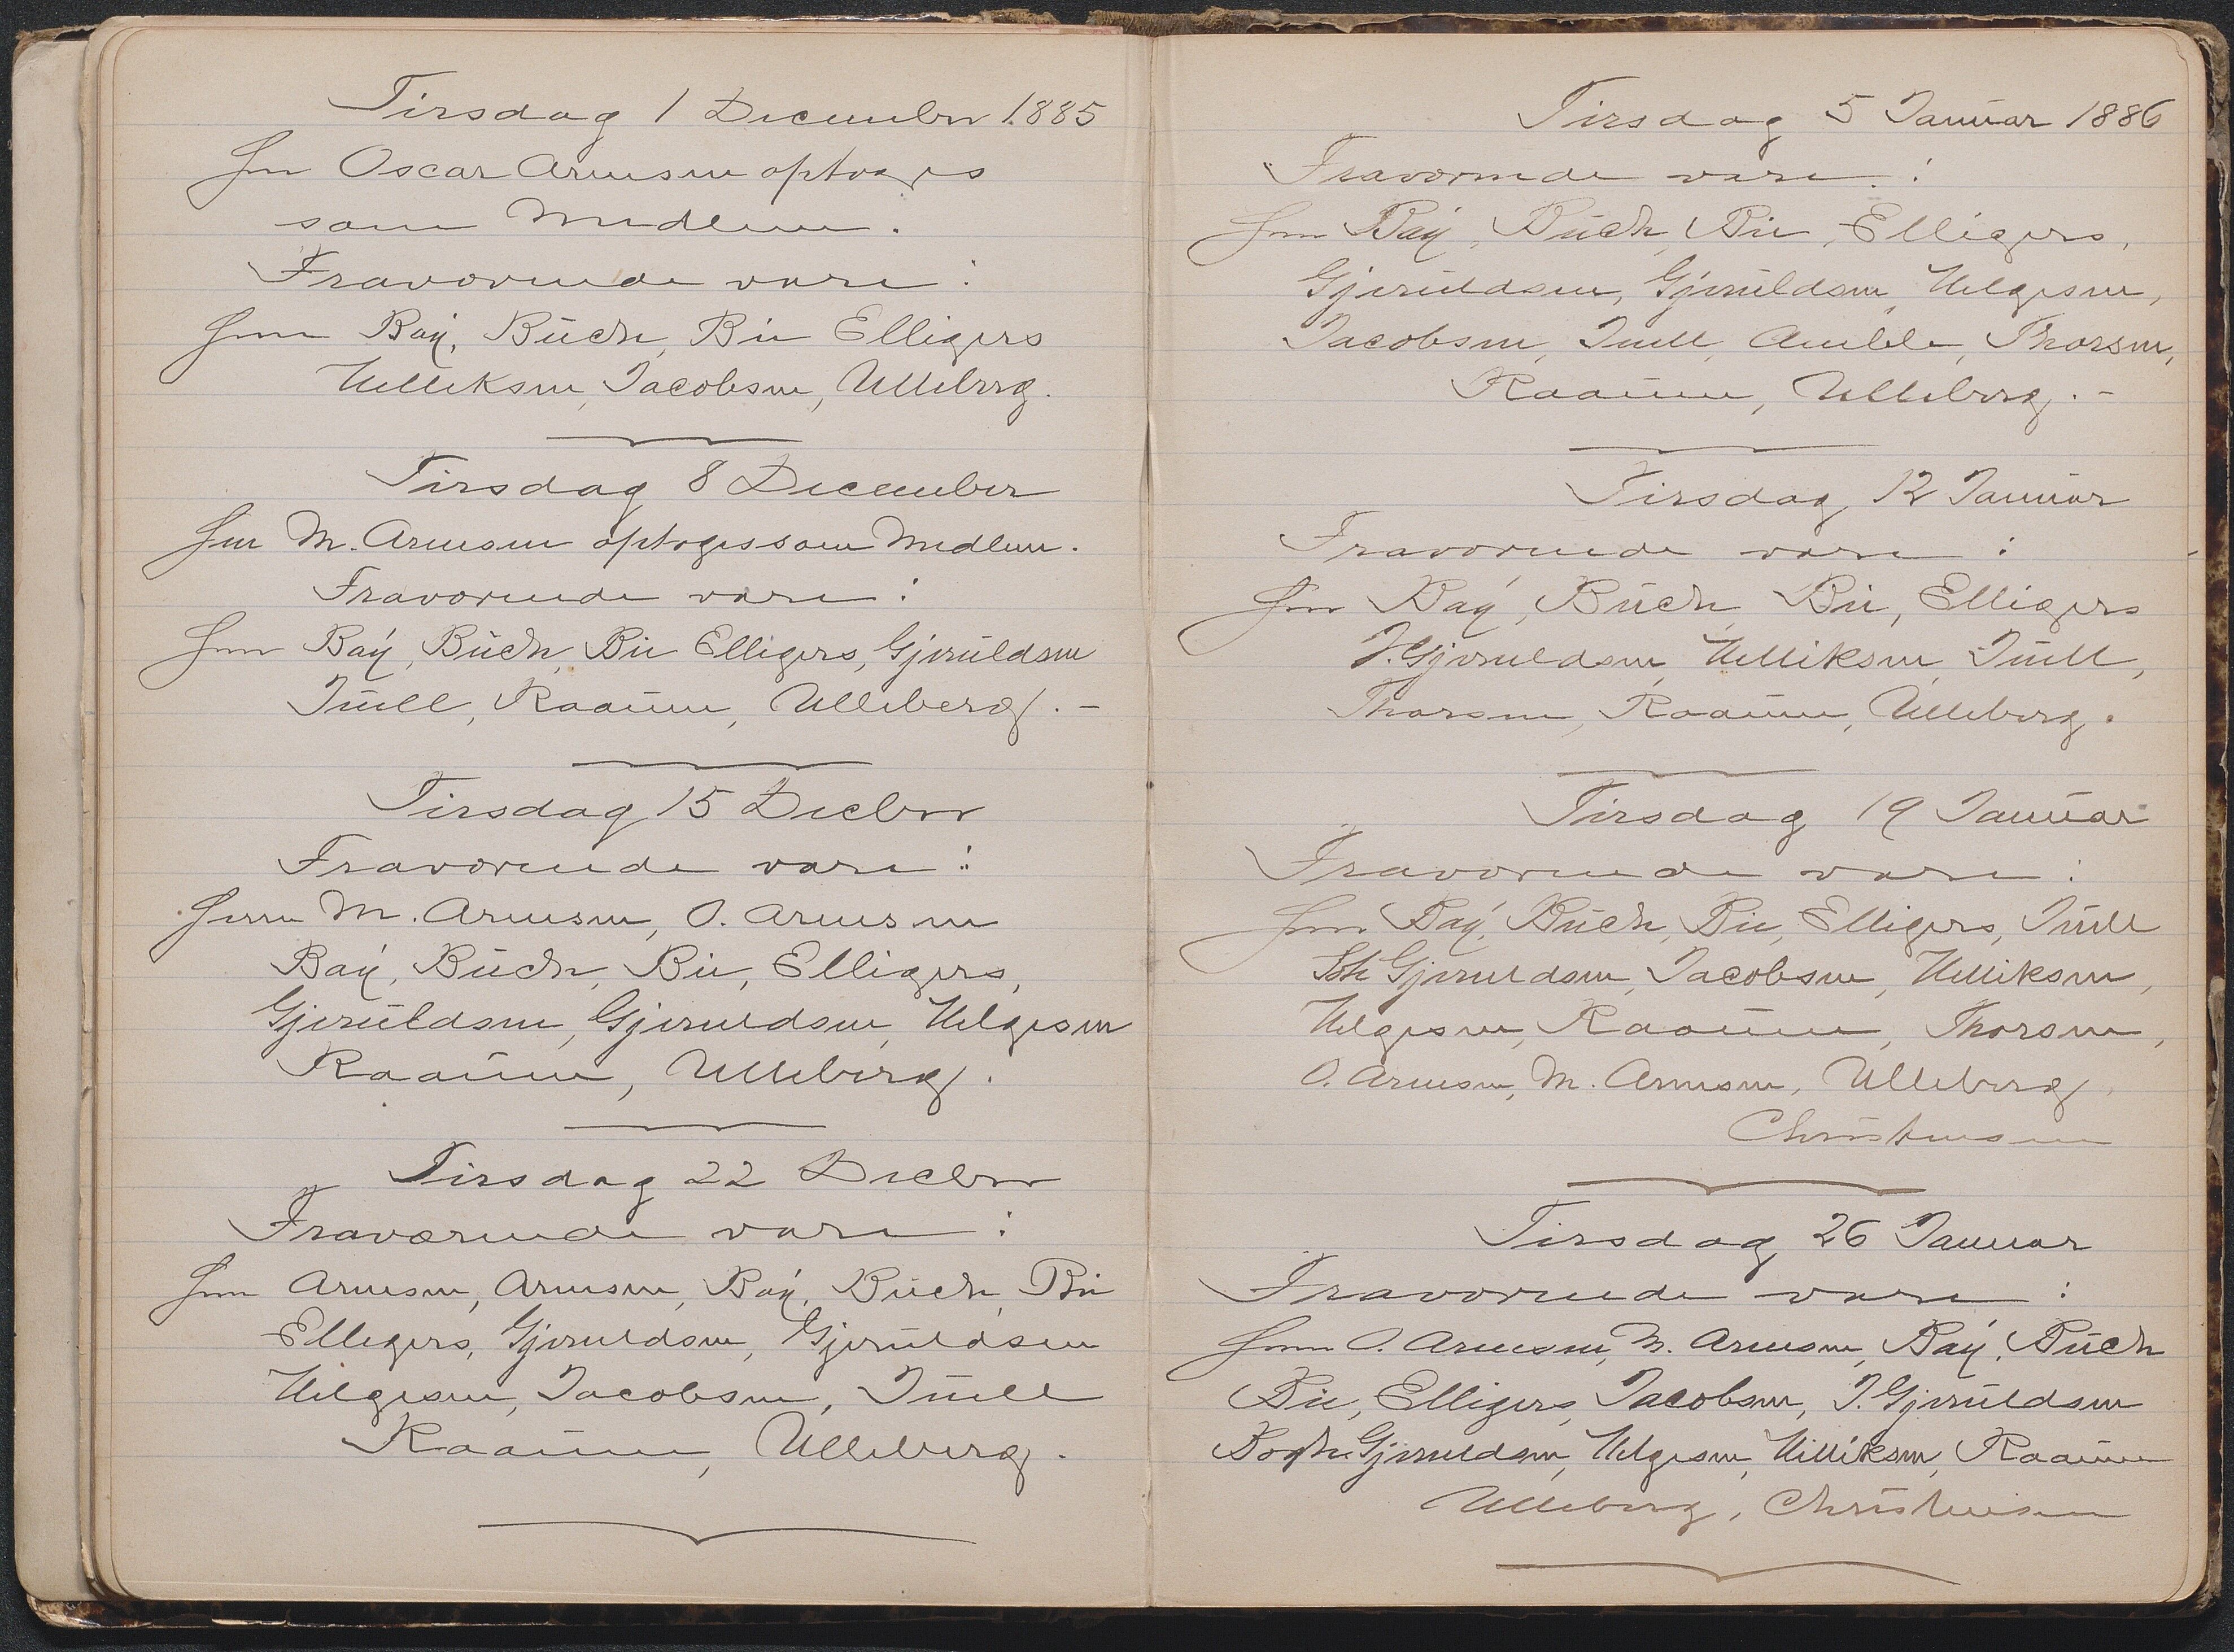 Tirsdag 1 December 1885
Hr Oscar Arnesen optoges
som Medlem.
Fraværende vare:
Hrr Bay, Buch, Bie Elligers
Helliksen, Jacobsen, Ulleberg.
Tirsdag 8 December
Hrr M. Arnesen optoges som Medlem.
Fraværende vare:
Hrr Bay, Buch, Bie Elligers, Gjeruldsen
Juell, Raaum, Ulleberg. -
Tirsdag 15 Decbr
Fraværende vare:
Herrer M. Arnesen, O. Arnesen
Bay, Buch, Bie, Elligers,
Gjeruldsen, Gjeruldsen, Helgesen
Raaum, Ulleberg.
Tirsdag 22 Decbr
Fraværende vare:
Hrr Arnesen, Arnesen, Bay, Buch, Bie
Elligers, Gjeruldsen, Gjeruldsen
Helgesen, Jacobsen, Juell
Raaum, Ulleberg.
Tirsdag 5 Januar 1886
Fraværende vare:
Hrr Bay, Buch, Bie, Elligers,
Gjeruldsen, Gjeruldsen, Helgesen,
Jacobsen, Juell, Thorsen,
Raaum, Ulleberg. -
Tirsdag 12 Januar
Fraværende vare:
Hrr Bay, Buch, Bie, Elligers
J. Gjeruldsen, Helliksen, Juell,
Thorsen, Raaum, Ulleberg.
Tirsdag 19 Januar
Fraværende vare:
Hrr Bay, Buch, Bie, Elligers, Juell
Joh Gjeruldsen, Jacobsen, Helliksen,
Helgesen, Raaum, Thorsen,
O. Arnesen, M. Arnesen, Ulleberg,
Christensen
Tirsdag 26 Januar
Fraværende vare:
Hrr O. Arnesen, M. Arnesen, Bay, Buch
Bie, Elligers, Jacobsen, J. Gjeruldsen
Gjeruldsen, Helgesen, Helliksen, Raaum
Ulleberg, Christensen